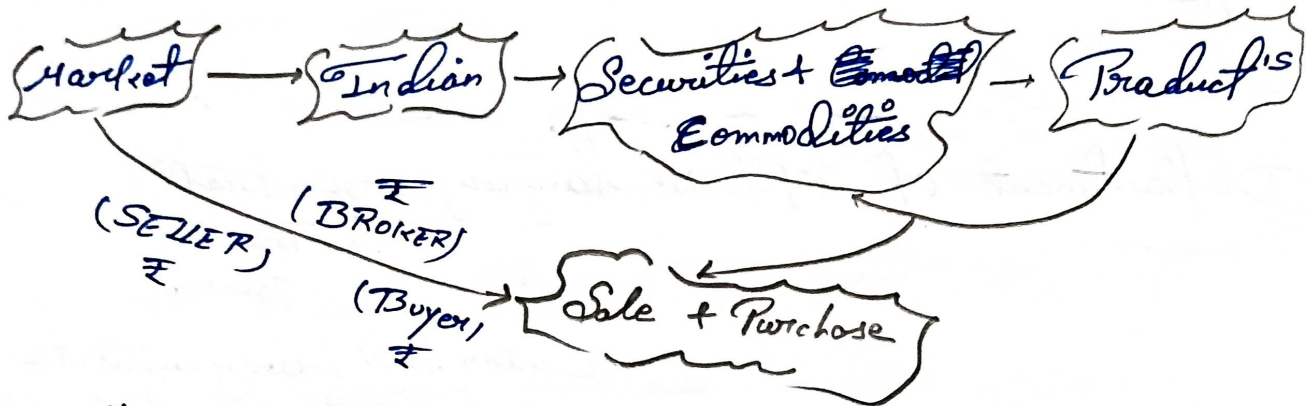 Market → Indian → Securities + Commodities → Product's
(SELLER, ₹
(BROKER) ₹
(Buyer, ₹
Sale + Purchase